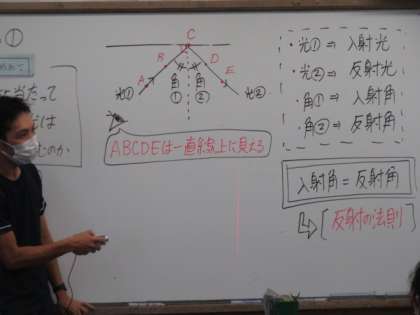 ①
C
B
D
A
E
光①
角①
角②
光②
ABCDEは一直線上に見える
・光① ⇒ 入射光
・光② ⇒ 反射光
・角① ⇒ 入射角
・角② ⇒ 反射角
入射角 = 反射角
[反射の法則]
当たって
は
のか